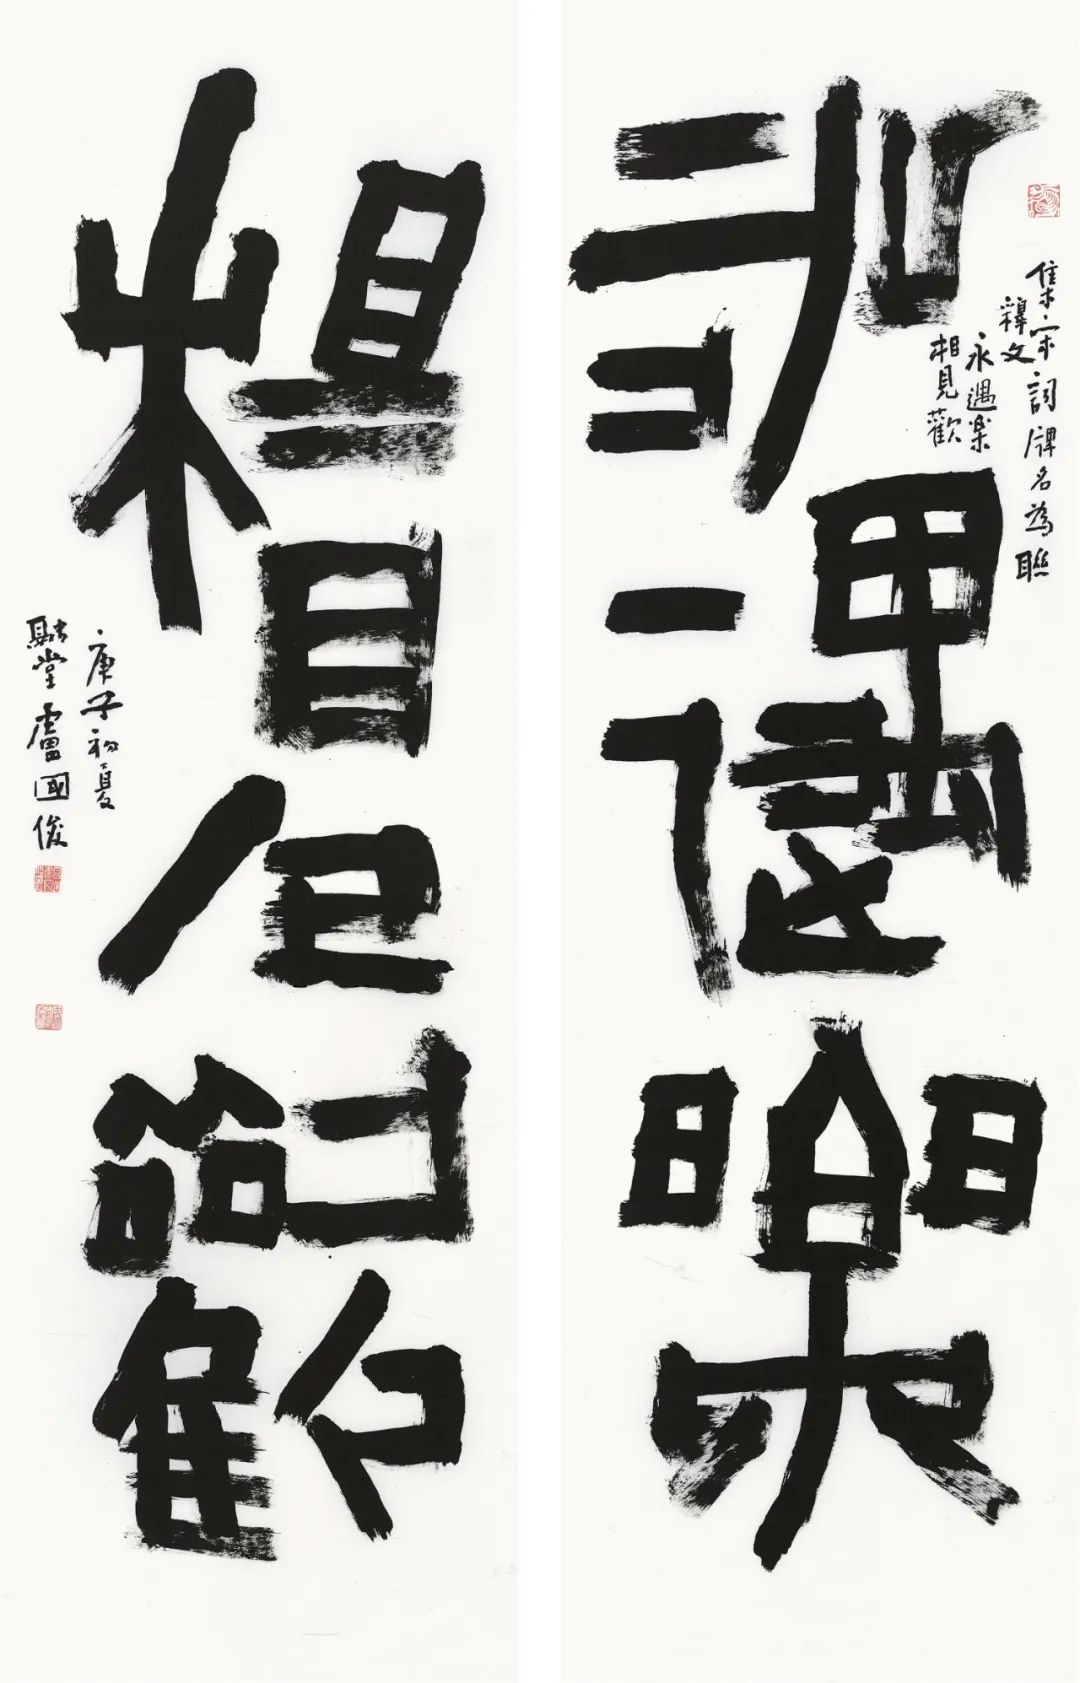 永遇樂
集宋詞牌名為聯
釋文
永遇樂
相見歡
相見歡
庚子初夏
融堂盧國俊